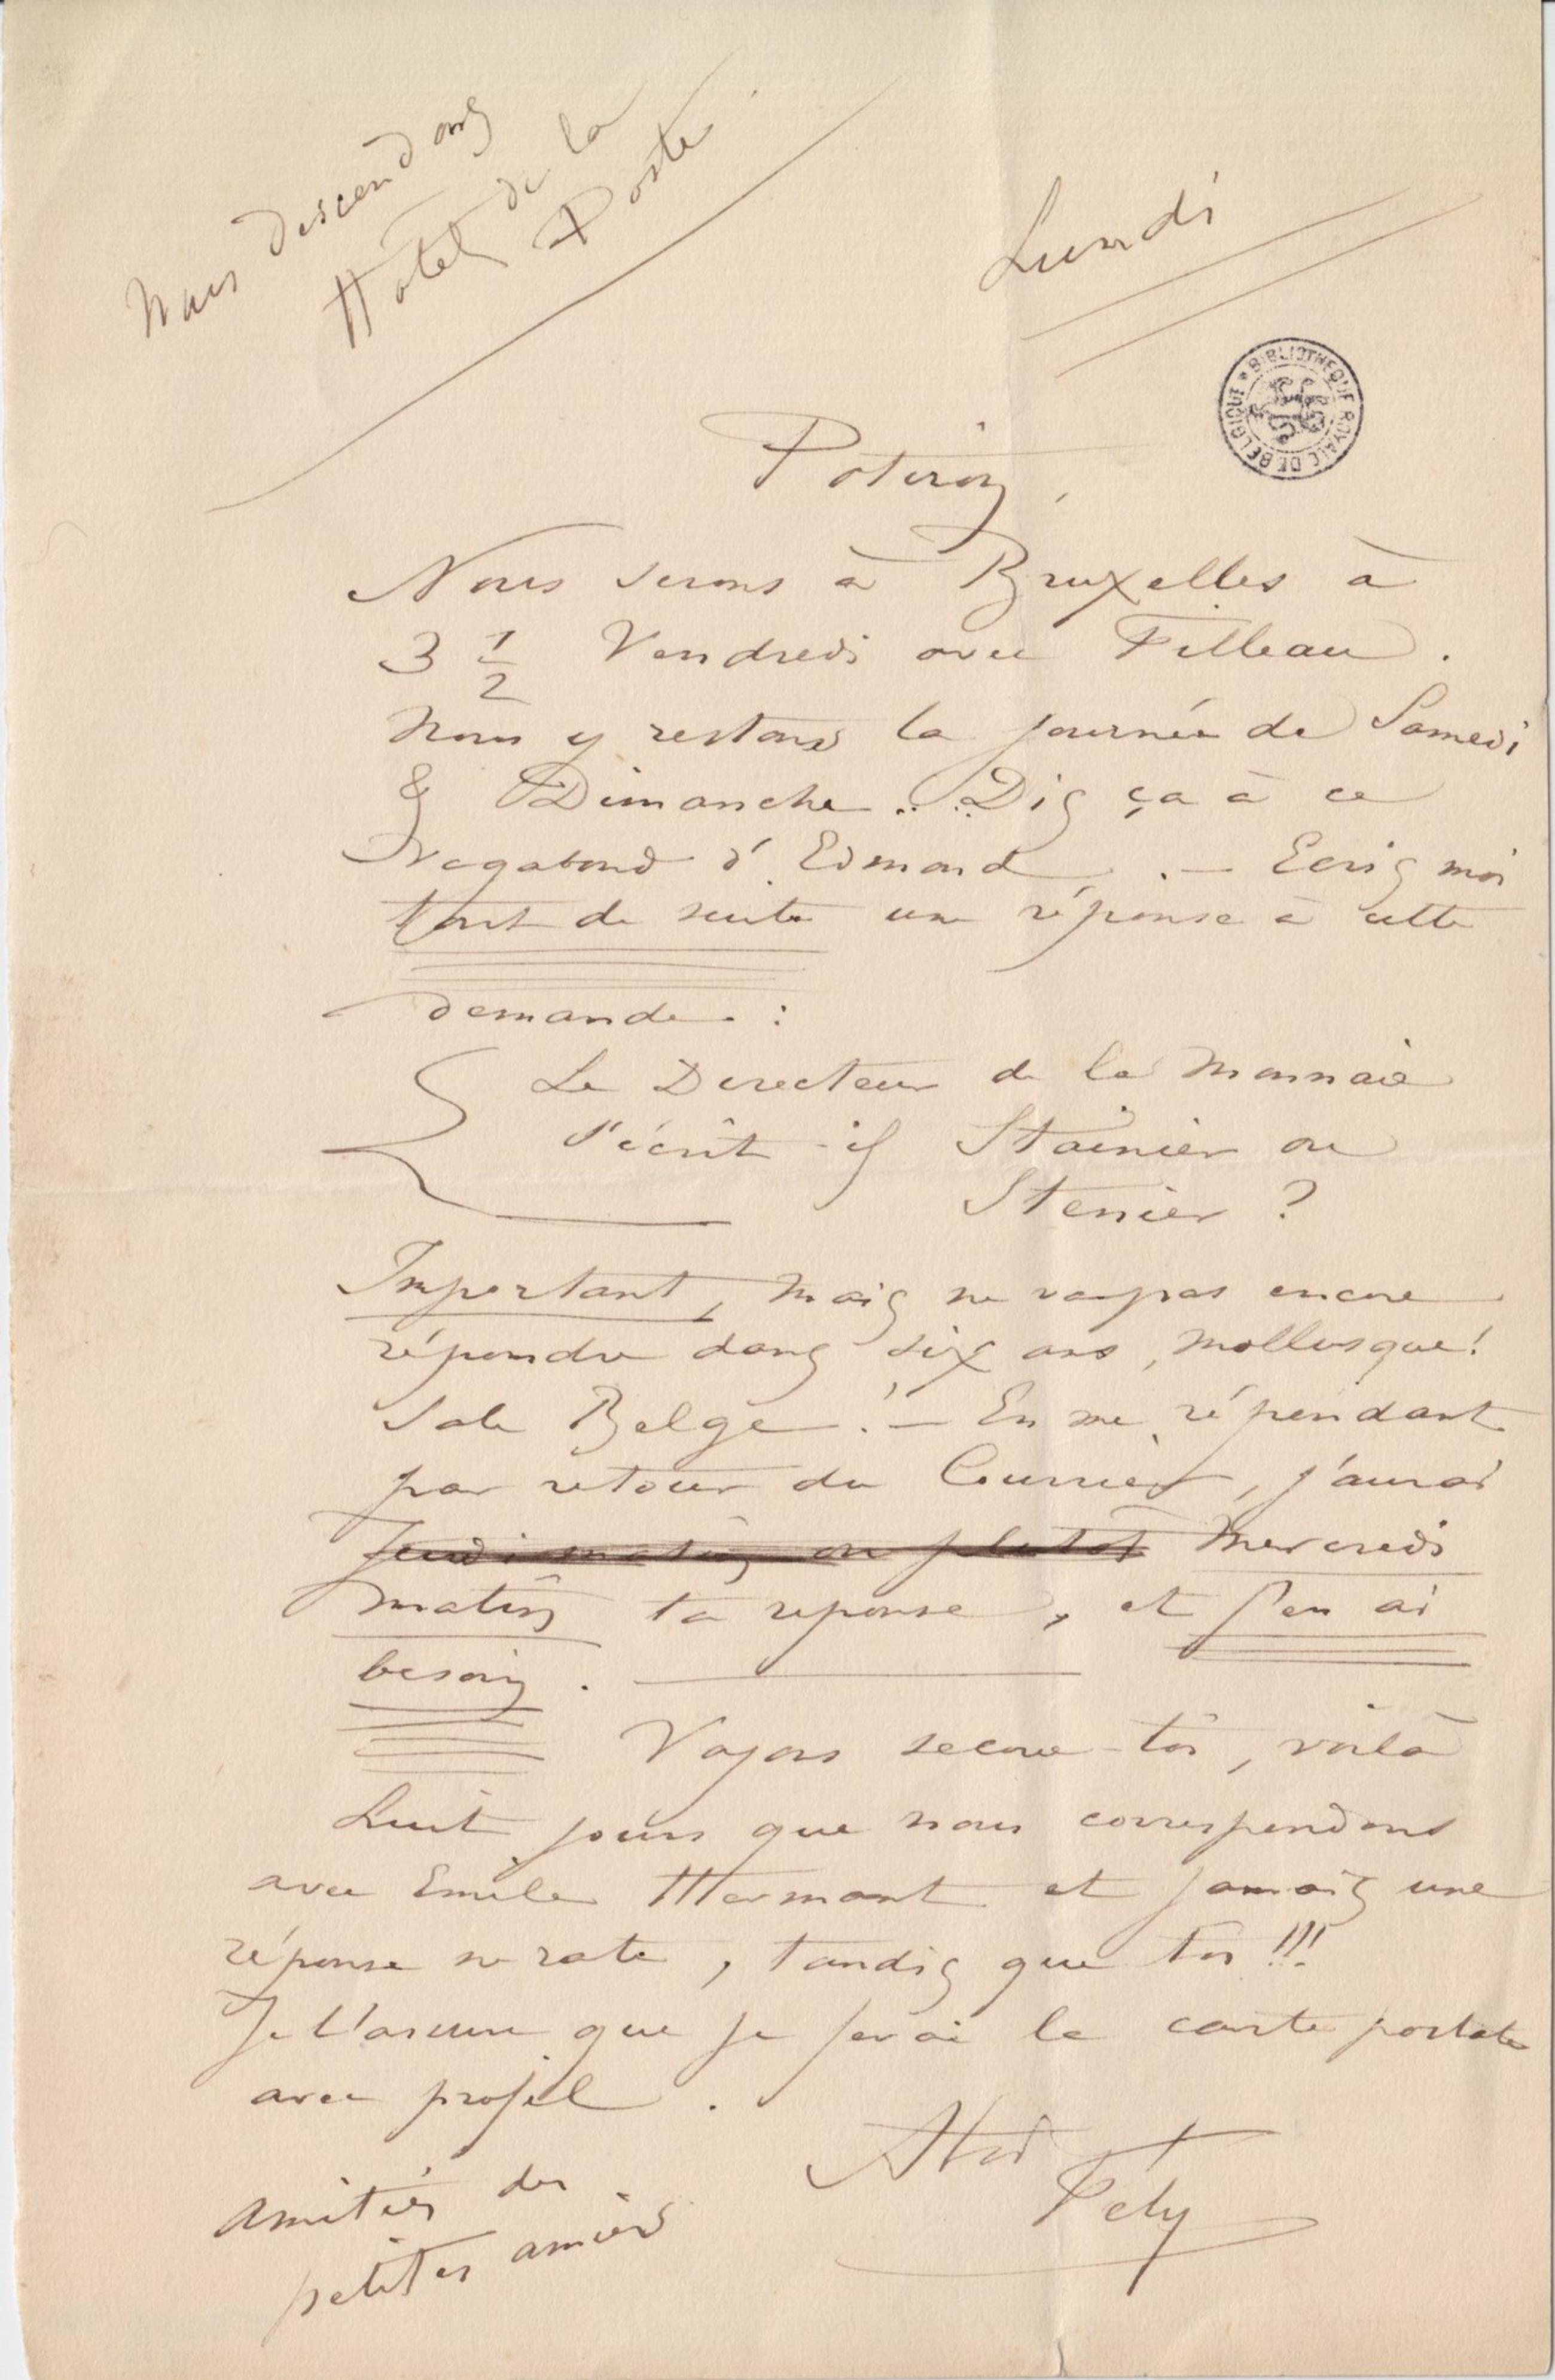 Nous descendons
Hotel de la
Poste
Lundi
BIBLIOTHEQUE ROYALE DE BELGIQUE
Potiron,
Nous serons à Bruxelles à
3 1/2 Vendredi avec Filleau.
Nous y restons la journée de Samedi
& Dimanche... Dis ça à ce
vagabond d'Edmond. — Ecris moi
tout de suite une réponse à cette
demande :
Le Directeur de la Monnaie
s'écrit-il Stainier ou
Stenier ?
Important, mais ne vas pas encore
répondre dans six ans, mollusque!
Sale Belge! — En me répondant
par retour du Courrier, j'aurai
Jeudi matin, ou plutot Mercredi
matin ta reponse, et j'en ai
besoin. —
Voyons secoue-toi, voilà
huit jours que nous correspondons
avec Emile Hermant et jamais une
réponse ne rate, tandis que toi !!!
Je t'assure que je ferai la carte postale
avec profil.
Fély
amitiés des
petites amies